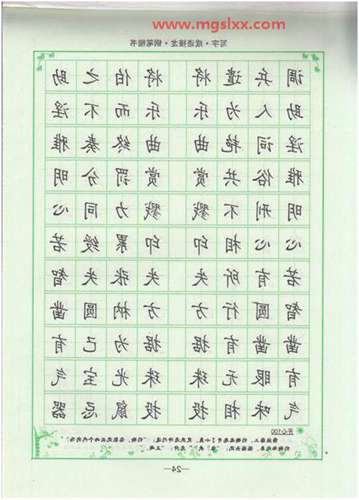 www.mgslxx.com
写字·成语接龙·钢笔楷书
调兵遣将将伯之助
助人为乐乐而不淫
淫词艳曲曲终奏雅
雅俗共赏赏罚分明
明刑不戮戮力同心
心心相印印累绶若
若有所失失张失智
智圆行方方枘圆凿
凿凿有据据为己有
有眼无珠珠光宝气
气味相投投鼠忌器
开心100
—24—